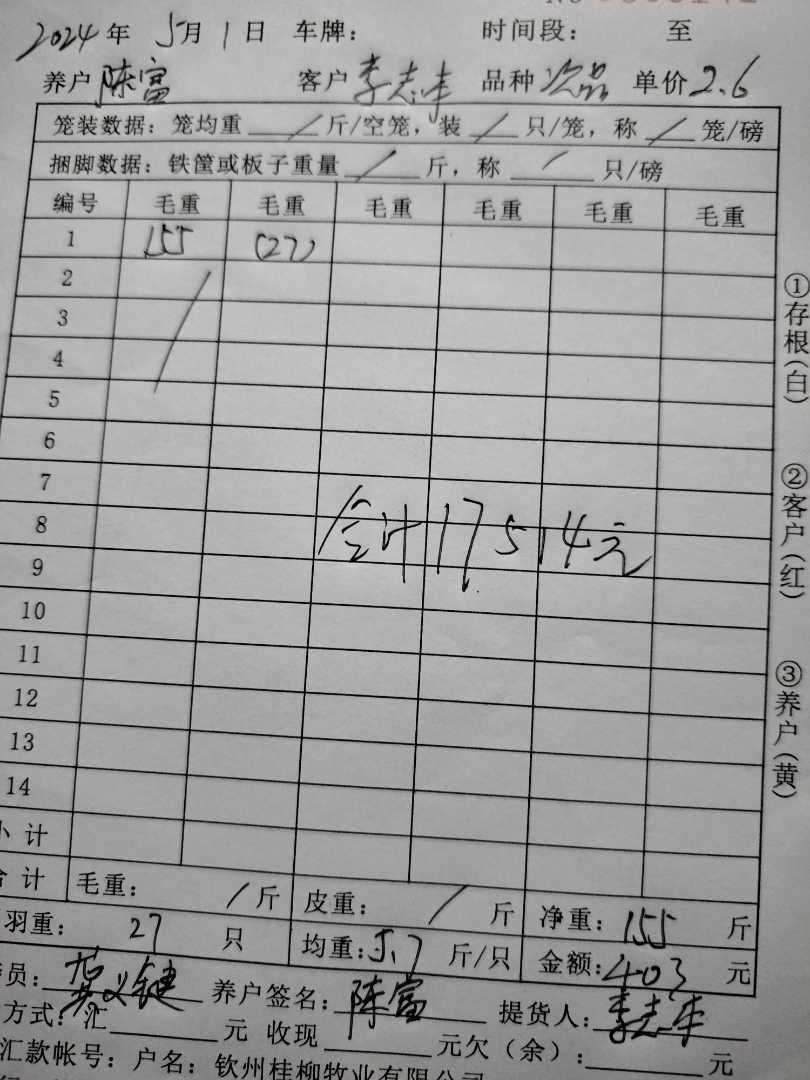 2024年 5月1日 车牌： 时间段： 至
养户 陈富 客户 李志丰 品种 次品 单价 2.6
笼装数据：笼均重 / 斤/空笼，装 / 只/笼，称 / 笼/磅
捆脚数据：铁筐或板子重量 / 斤，称 / 只/磅
编号 毛重 毛重 毛重 毛重 毛重 毛重
1 155 (27)
2
3
4
5
6
7
8 合计17514元
9
10
11
12
13
14
小计
合计 毛重： / 斤 皮重： / 斤 净重：155 斤
羽重： 27 只 均重：5.7 斤/只 金额：403 元
员： 龚义键 养户签名： 陈富 提货人： 李志丰
方式：汇 元 收现 元欠（余）： 元
汇款帐号：户名：钦州桂柳牧业有限公司
①存根(白)
②客户(红)
③养户(黄)